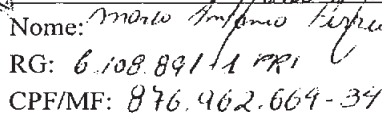 Nome: Marco Antonio
RG: 6.108.891-1 PR1
CPF/MF: 876.962.669-34